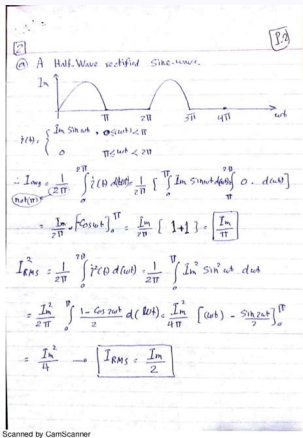 P.2
2
(a) A Half-Wave rectified Sine-wave.
Im
π 2π 3π 4π ωt
i(t) = { Im Sin ωt , 0≤ωt<π
0 π≤ωt<2π
∴ Iavg = 1/2π ∫₀^2π i(t) d(ωt) = 1/2π [ ∫₀^π Im Sinωt d(ωt) + ∫π^2π 0 · d(ωt) ]
(not (π))
= Im/2π · [-Cos ωt]₀^π = Im/2π [ 1+1 ] = Im/π
I²RMS = 1/2π ∫₀^2π i²(t) d(ωt) = 1/2π ∫₀^π Im² Sin² ωt dωt
= Im²/2π ∫₀^π 1-Cos 2ωt/2 d(ωt) = Im²/4π [ (ωt) - Sin 2ωt/2 ]₀^π
= Im²/4 → IRMS = Im/2
Scanned by CamScanner